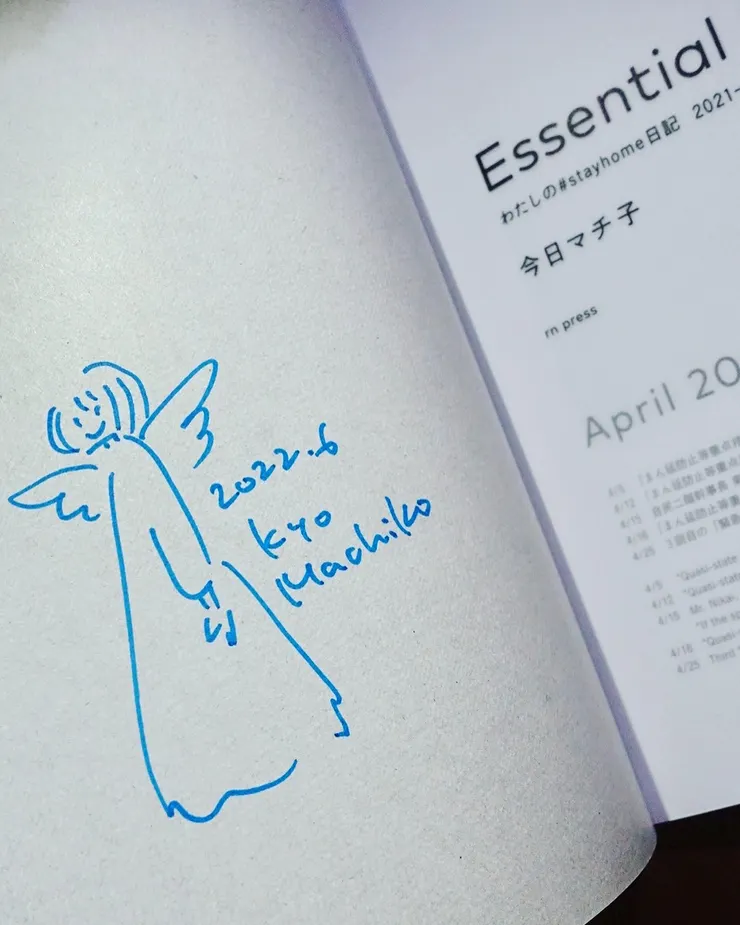 2022.6
Kyo
Machiko
Essential
わたしの#stayhome日記 2021-
今日マチ子
rn press
April 20
4/5 「まん延防止等重点措
4/12 「まん延防止等重点
4/15 自民二階幹事長
4/16 「まん延防止等重
4/25 3回目の「緊急
4/5 "Quasi-state
4/12 "Quasi-state
4/15 Mr. Nikai,
"If the sp
4/16 "Quasi-
4/25 Third